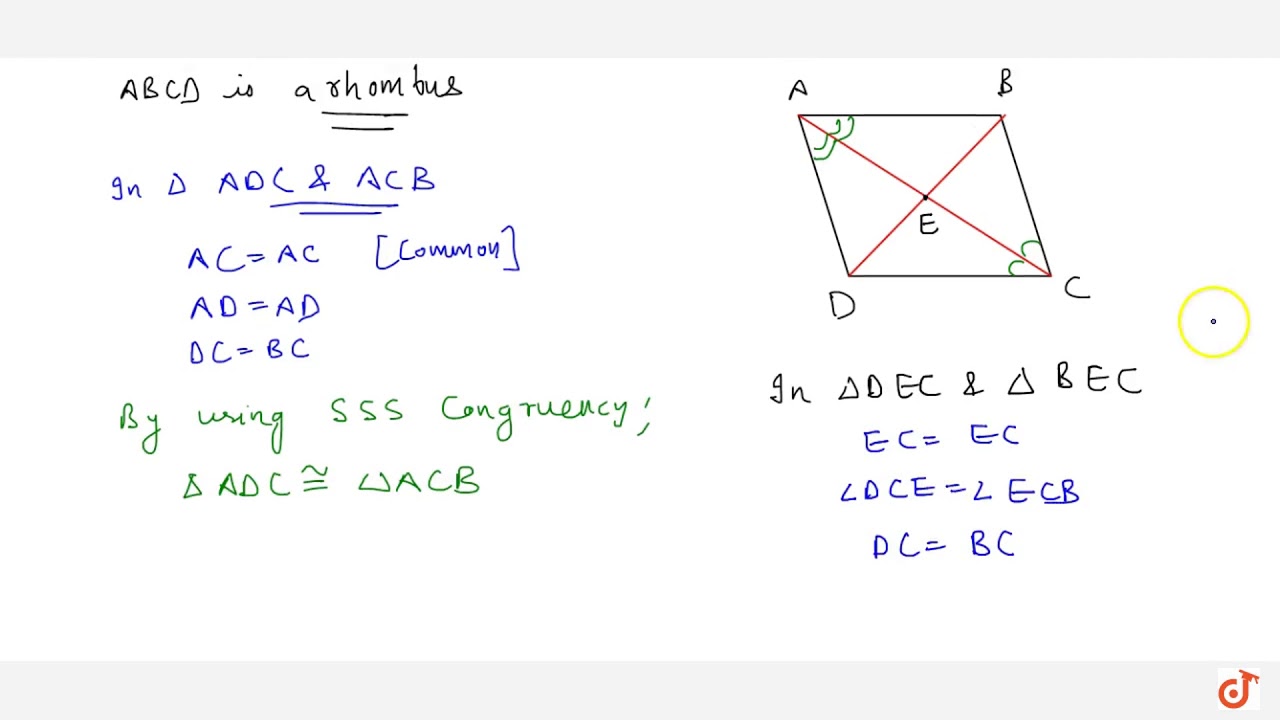 ABCD is a rhombus
In Δ ADC & ACB
AC = AC [Common]
AD = AD
DC = BC
By using SSS Congruency;
Δ ADC ≅ ΔACB
A
B
E
D
C
In ΔDEC & Δ BEC
EC = EC
∠DCE = ∠ECB
DC = BC